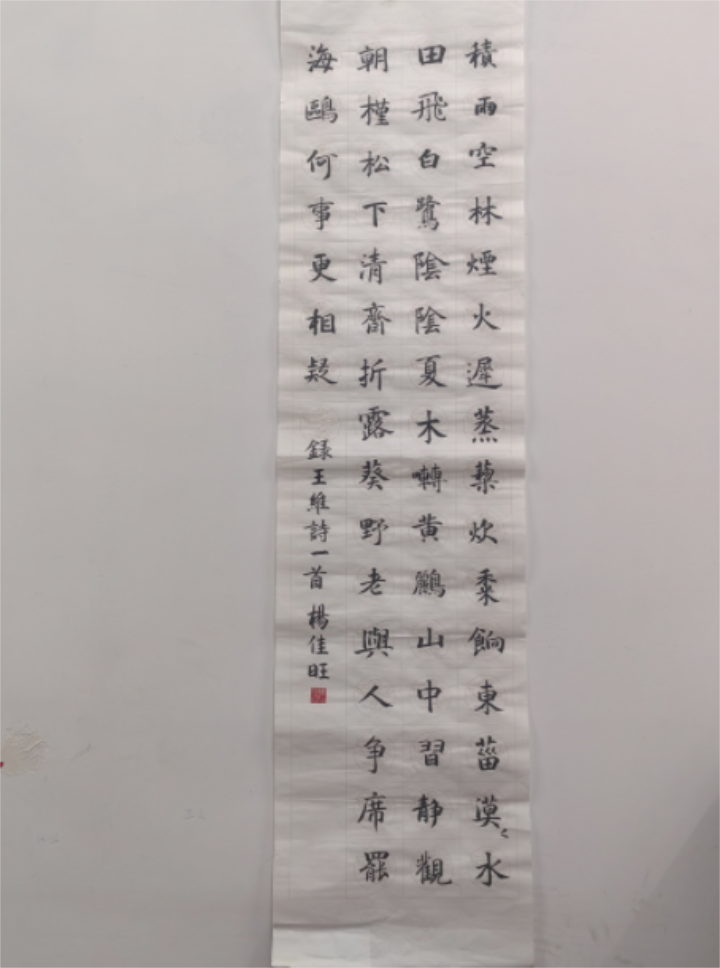 積雨空林煙火遲蒸藜炊黍餉東菑漠〻水
田飛白鷺陰陰夏木囀黄鸝山中習静觀
朝槿松下清齋折露葵野老與人争席罷
海鷗何事更相疑
録王維詩一首楊佳旺